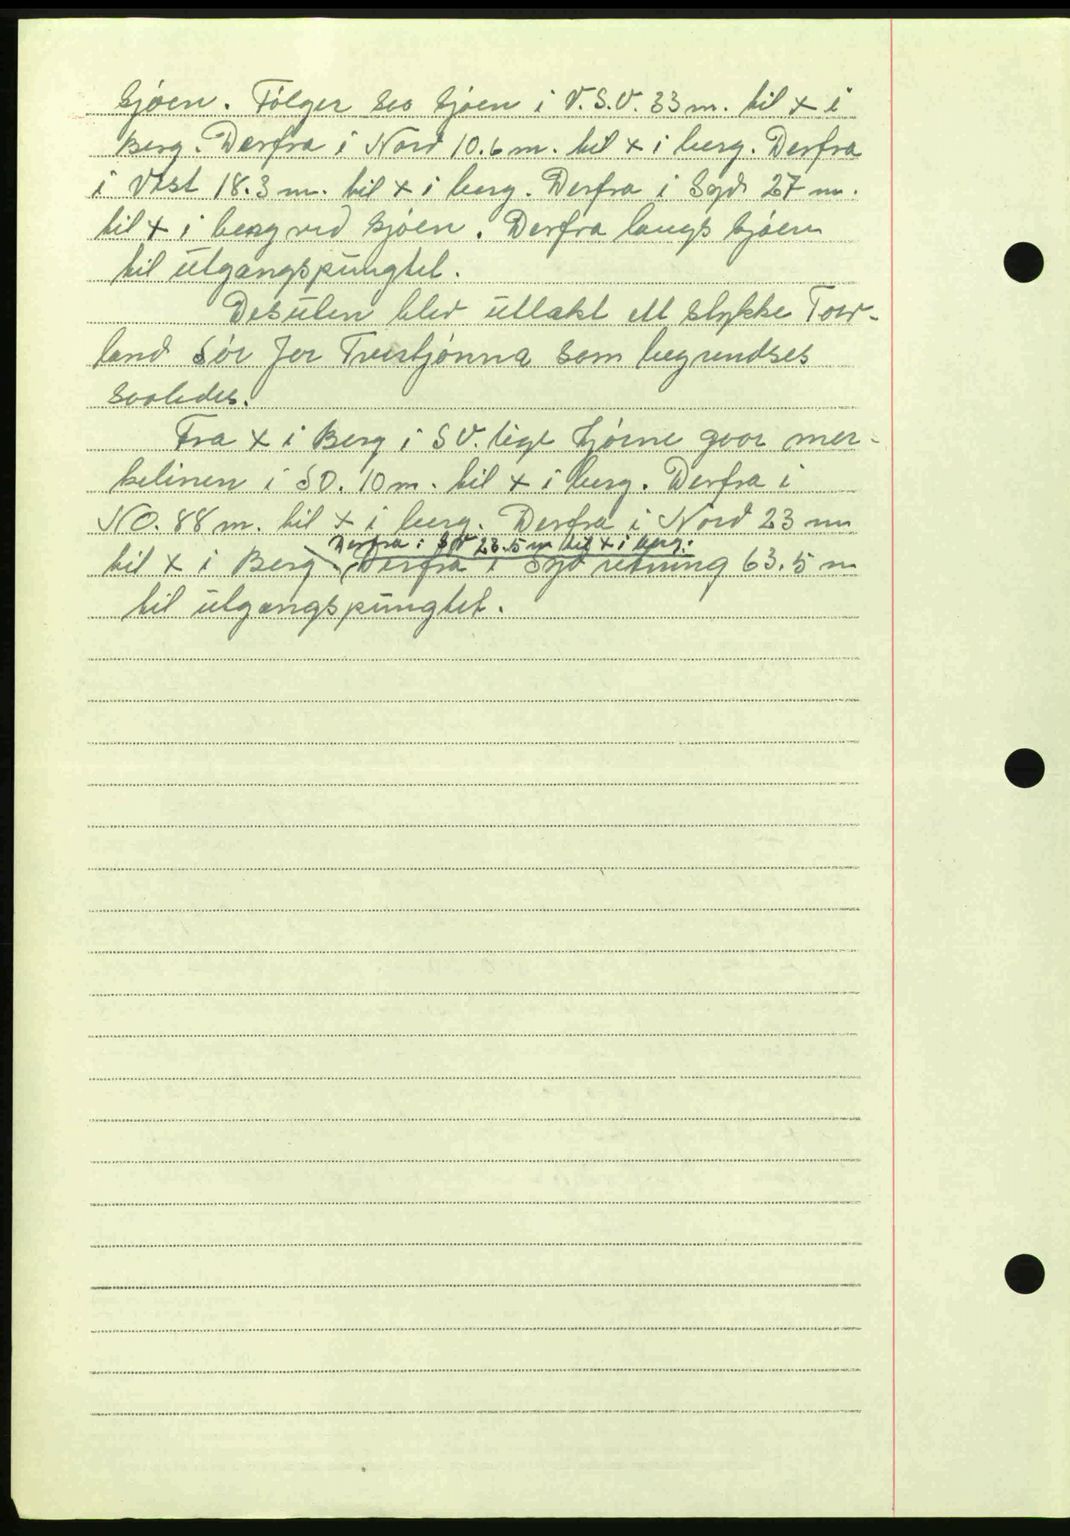 Sjøen. Følger saa Sjøen i V.S.V. 33 m. til x i
Berg. Derfra i Nord 10.6 m. til x i berg. Derfra
i Vest 18.3 m. til x i berg. Derfra i Syd 27 m.
til x i berg ved Sjøen. Derfra langs Sjøen
til utgangspungtet.
Desuten blev utlakt ett stykke Tor-
land Sør for Trestjønna som begrendses
saaledes.
Fra x i Berg i SV. ligt hjørne gaar mer-
kelinen i SO. 10 m. til x i berg. Derfra i
NO. 88 m. til x i berg. Derfra i Nord 23 m
Derfra i SV 23.5 m til x i berg.
til x i Berg Derfra i Syd retning 63.5 m
til utgangspungtet.